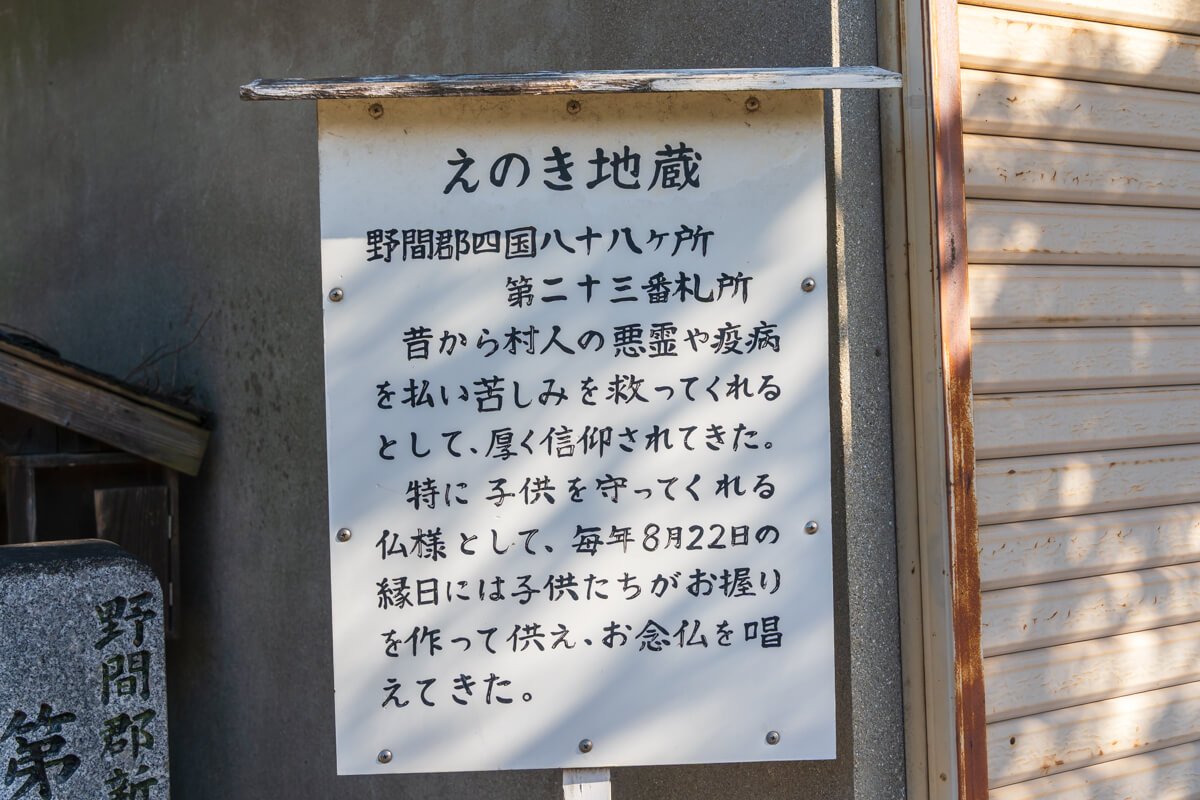 えのき地蔵
野間郡四国八十八ヶ所
第二十三番札所
昔から村人の悪霊や疫病
を払い苦しみを救ってくれる
として、厚く信仰されてきた。
特に子供を守ってくれる
仏様として、毎年8月22日の
縁日には子供たちがお握り
を作って供え、お念仏を唱
えてきた。
野間郡新
第